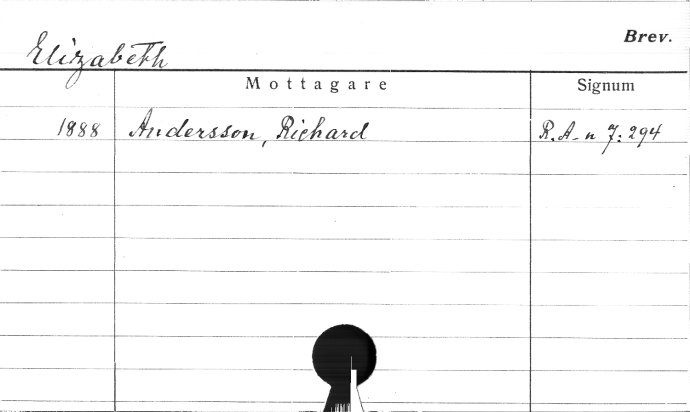 Brev.
Elizabeth
Mottagare Signum
1888 Andersson, Richard R.A-n 7:294